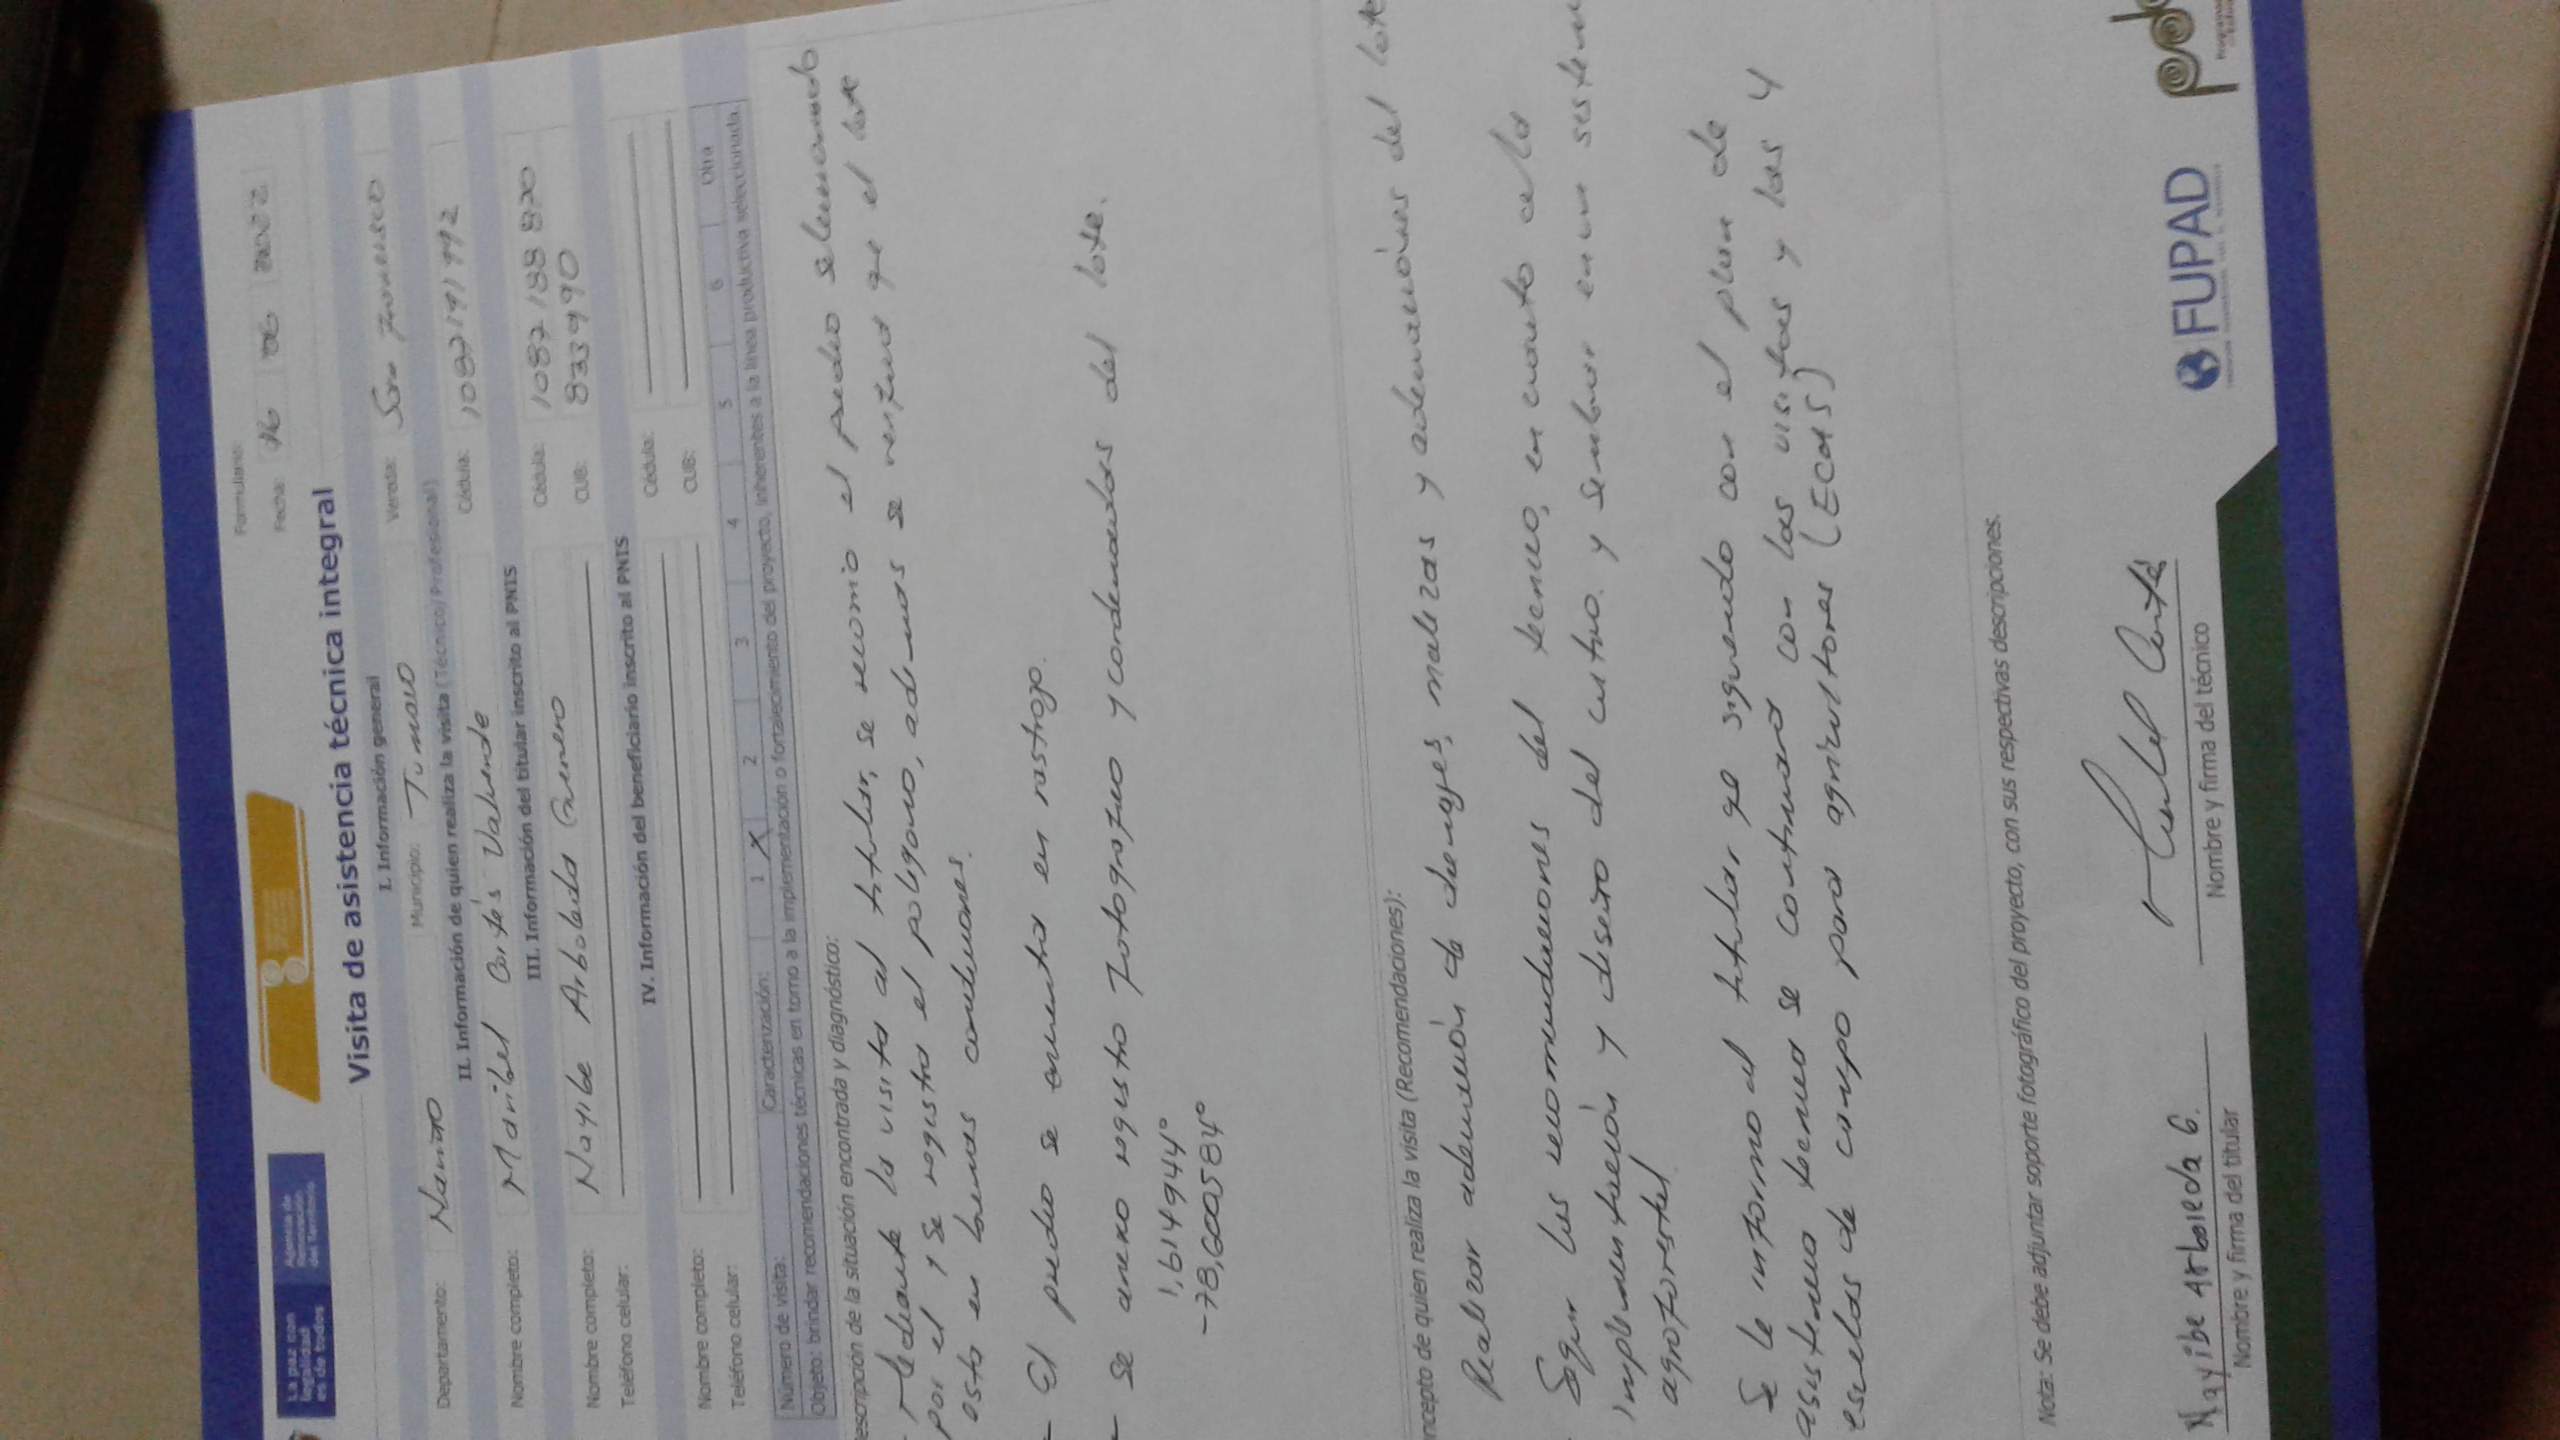 La paz con
legalidad
es de todos
Agencia de
Renovación
del Territorio
Formulario:
Fecha: 16 06 2022
Visita de asistencia técnica integral
I. Información general
Departamento: Nariño Municipio: Tumaco Vereda: San Francisco
II. Información de quien realiza la visita (Técnico/Profesional)
Nombre completo: Maribel Cortés Valverde Cédula:
III. Información del titular inscrito al PNIS
Nombre completo: Nayibe Arboleda Guerrero Cédula: 1087188820
Teléfono celular: CUB: 833990
IV. Información del beneficiario inscrito al PNIS
Nombre completo: Cédula:
Teléfono celular: CUB:
Número de visita: Caracterización: 1 X 2 3 4 5 6 Otra
Objeto: brindar recomendaciones técnicas en torno a la implementación o fortalecimiento del proyecto, inherentes a la línea productiva seleccionada.
escripción de la situación encontrada y diagnóstico:
Mediante la visita al titular, se recorrio el predio seleccionado
por el y se registra el poligono, ademas se verifico que el lote
esta en buenas condiciones.
- El predio se encuentra en rastrojo.
- Se anexo registro fotografico y cordenadas del lote.
1,614944°
-78,600584°
ncepto de quien realiza la visita (Recomendaciones):
Realizar adecuación de drenajes, malezas y adecuaciónes del lote
Segun las recomendaciones del tecnico, en cuanto a la
implementación y diseño del cultivo y sembrar en un sistem
agroforestal
Se le informo al titular que siguiendo con el plan de
asistencia tecnica se continuara con las visitas y las 4
escuelas de campo para agricultores (ECAS)
Nota: Se debe adjuntar soporte fotográfico del proyecto, con sus respectivas descripciones.
Nayibe Arboleda G. Maribel Cortés
Nombre y firma del titular Nombre y firma del técnico
FUPAD